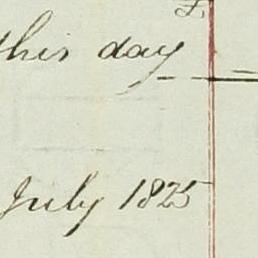 this day
July 1825